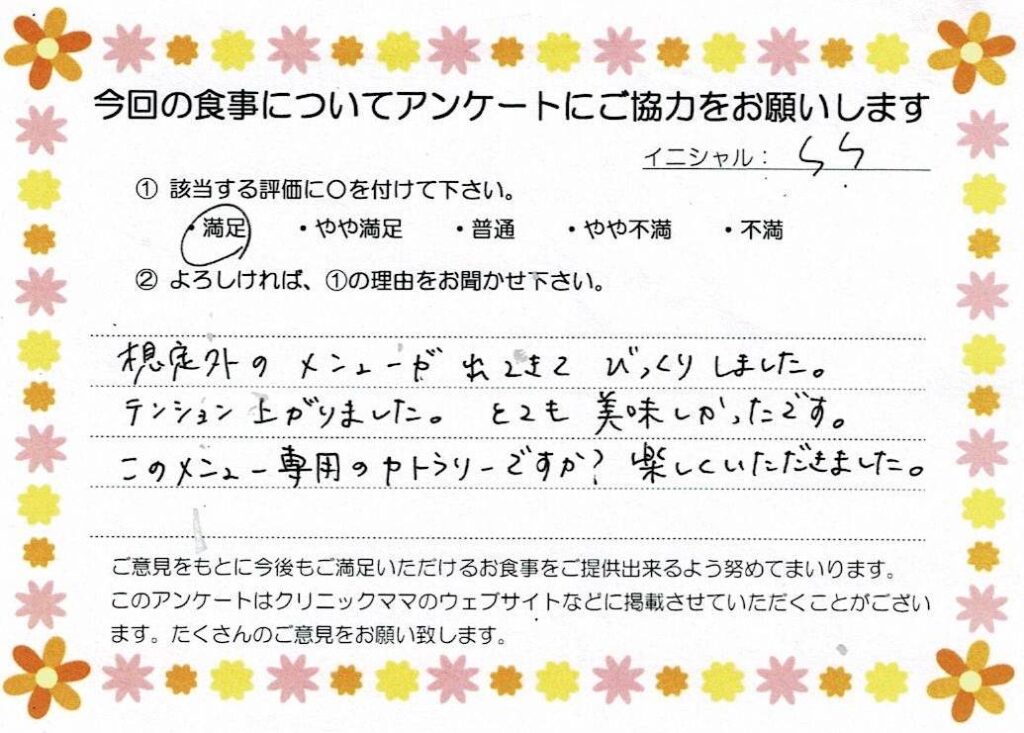 今回の食事についてアンケートにご協力をお願いします
イニシャル：
① 該当する評価に〇を付けて下さい。
・満足 ・やや満足 ・普通 ・やや不満 ・不満
② よろしければ、①の理由をお聞かせ下さい。
想定外の メニューが 出てきて びっくり しました。
テンション 上がりました。 とても 美味しかったです。
このメニュー専用のカトラリーですか? 楽しくいただきました。
ご意見をもとに今後もご満足いただけるお食事をご提供出来るよう努めてまいります。
このアンケートはクリニックママのウェブサイトなどに掲載させていただくことがござい
ます。たくさんのご意見をお願い致します。